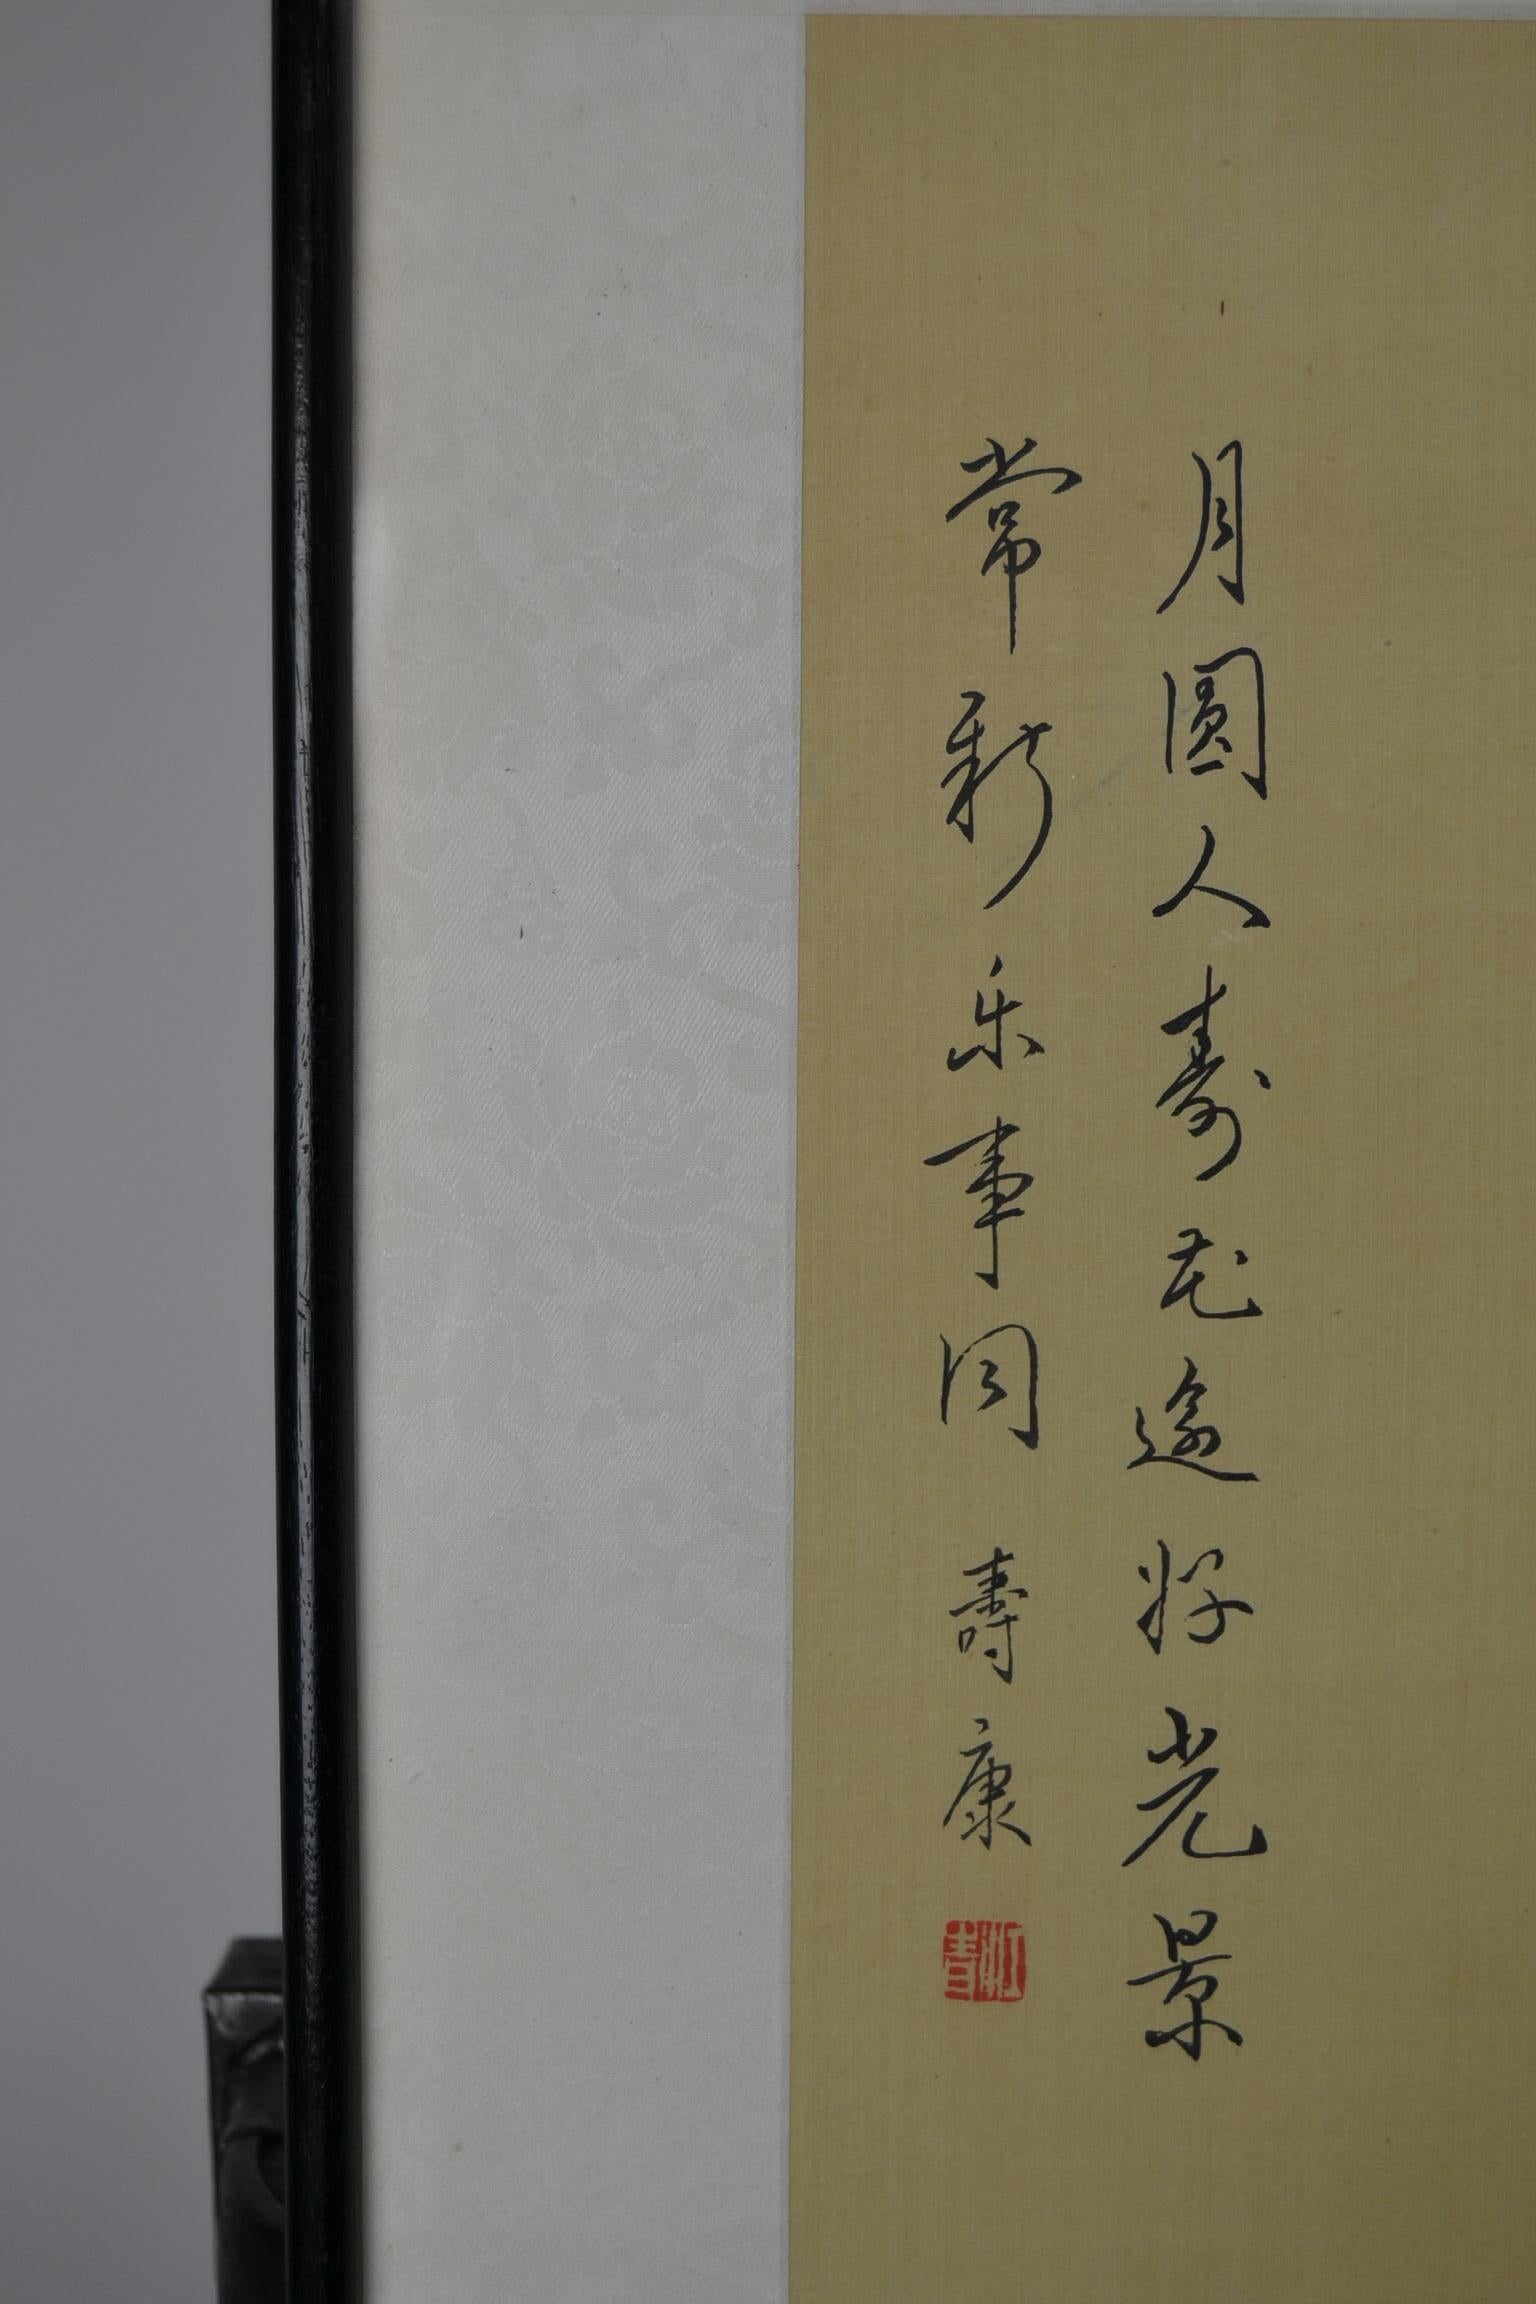 月圓人壽花逾好光景
常新乐事同 壽康